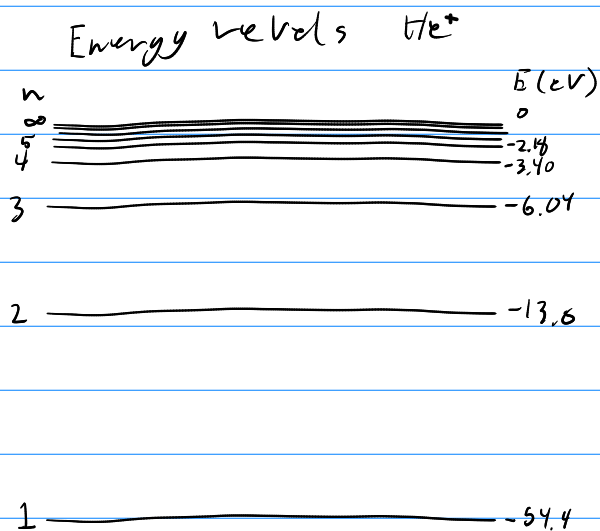 Energy Levels He⁺
n E (eV)
∞ 0
5 -2.18
4 -3.40
3 -6.04
2 -13.6
1 -54.4